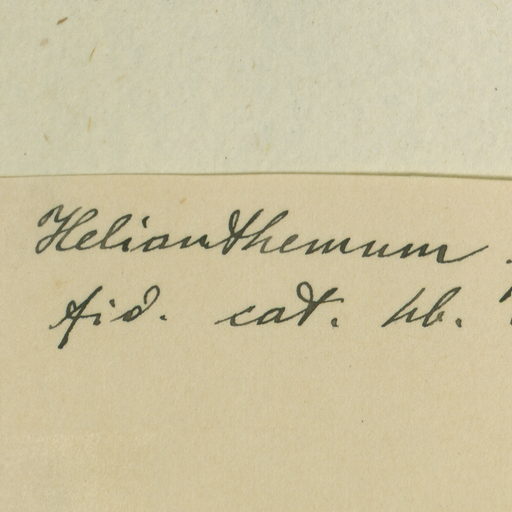 Helianthemum
fid. cat. hb.